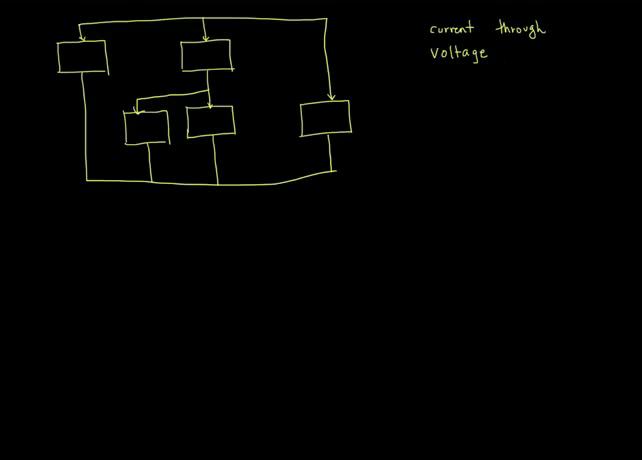 current through
Voltage